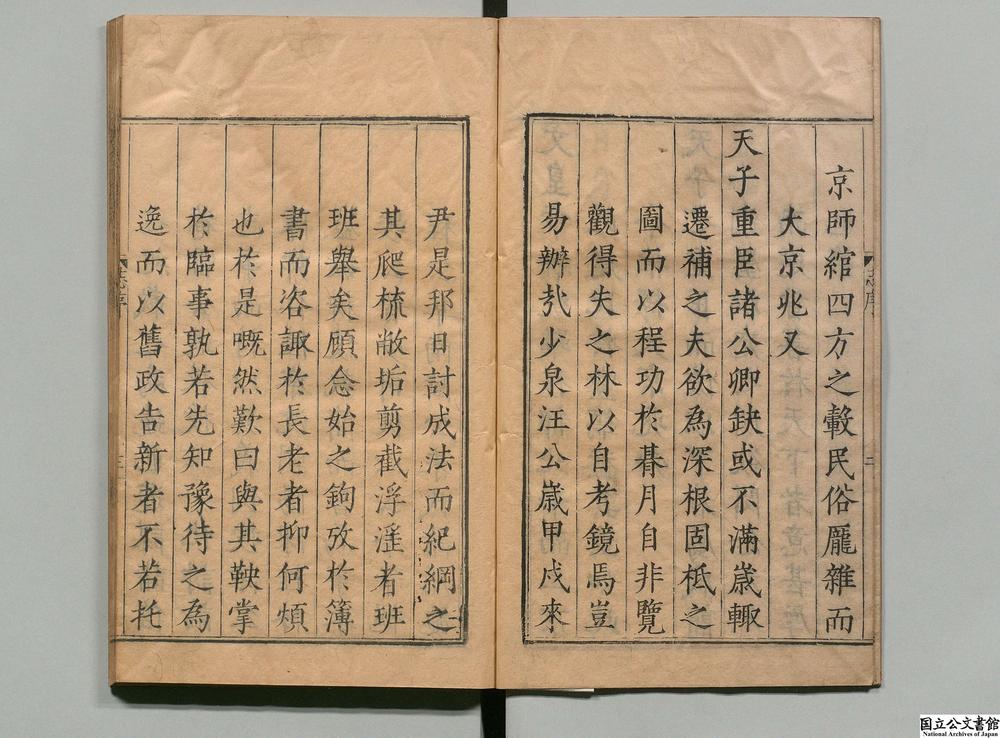 京師綰四方之轂民俗厖雜而
大京兆又
天子重臣諸公卿缺或不滿歲輙
遷補之夫欲為深根固柢之
圖而以程功於朞月自非覽
觀得失之林以自考鏡焉豈
易辦哉少泉汪公歲甲戍來
尹是邦日討成法而紀綱之
其爬梳敝垢剪截浮滛者班
班舉矣顧念始之鉤攷於簿
書而咨諏於長老者抑何煩
也於是嘅然歎曰與其鞅掌
於臨事孰若先知豫待之為
逸而以舊政告新者不若托
志序
二
志序
国立公文書館
National Archives of Japan